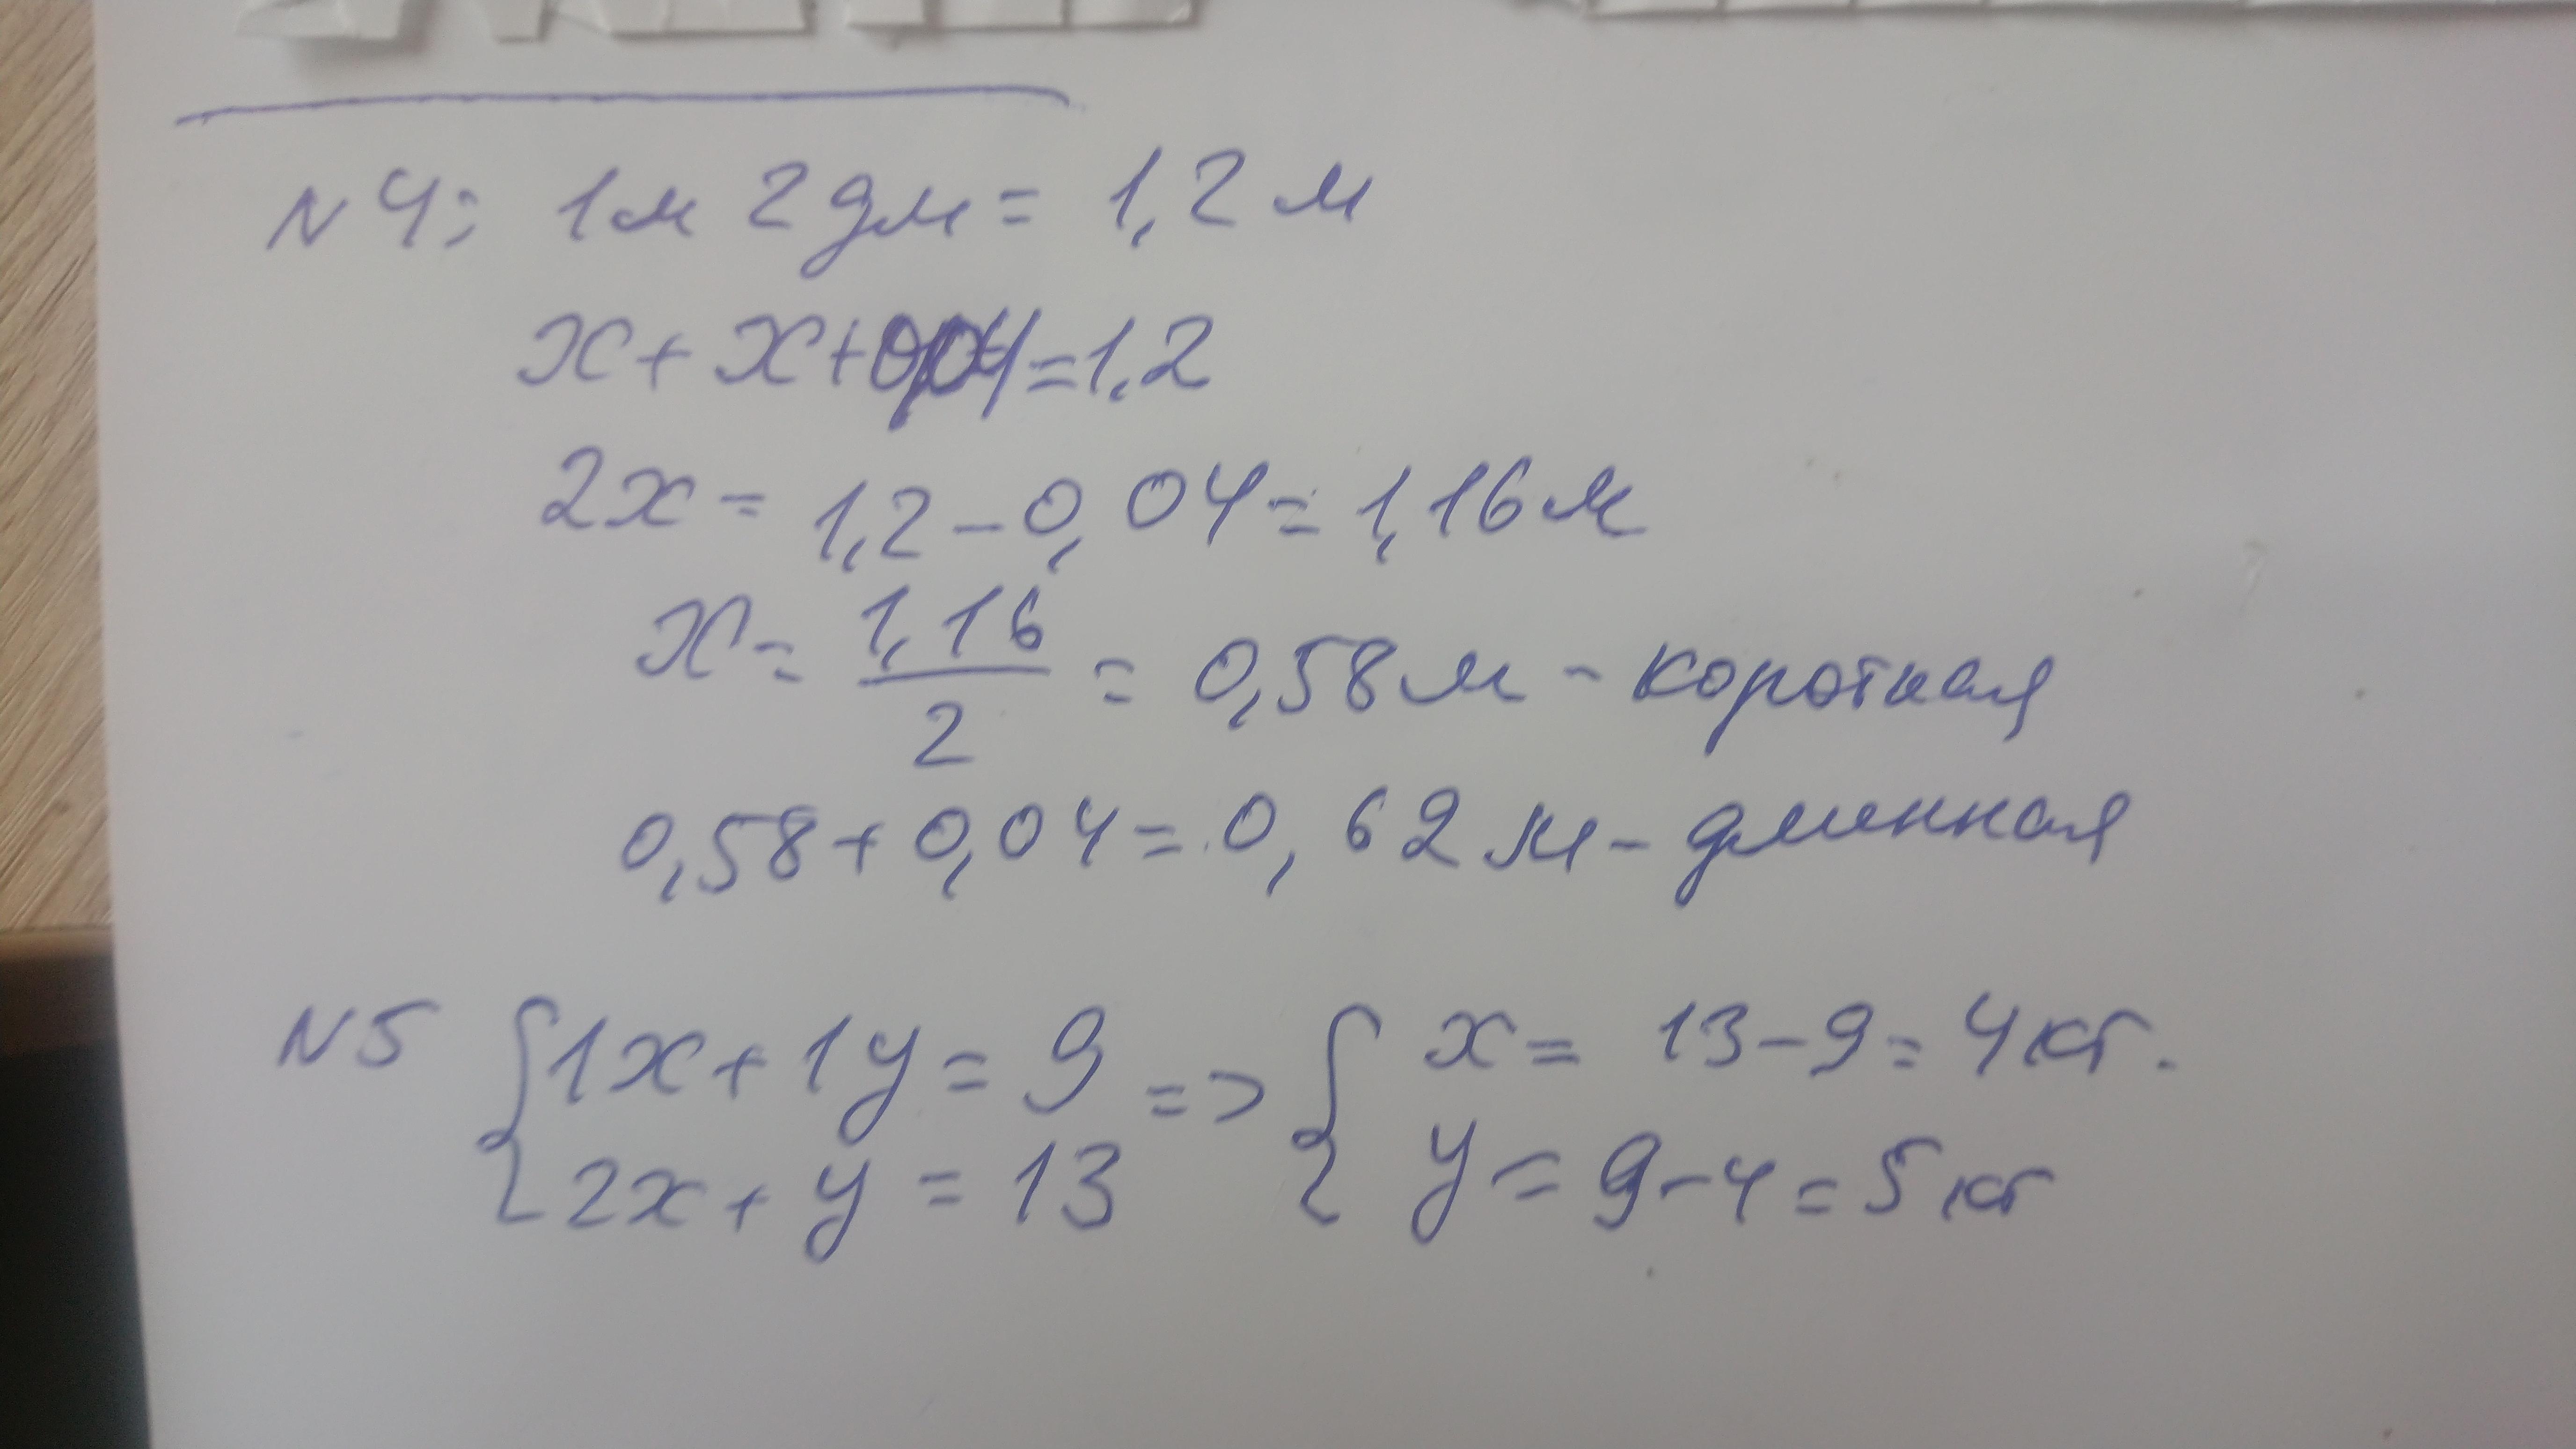 N 4: 1м 2дм = 1,2 м
x + x + 0,04 = 1,2
2x = 1,2 - 0,04 = 1,16 м
x = 1,16/2 = 0,58 м - короткая
0,58 + 0,04 = 0,62 м - длинная
N5 {1x + 1y = 9 => { x = 13 - 9 = 4 кг.
2x + y = 13 y = 9 - 4 = 5 кг